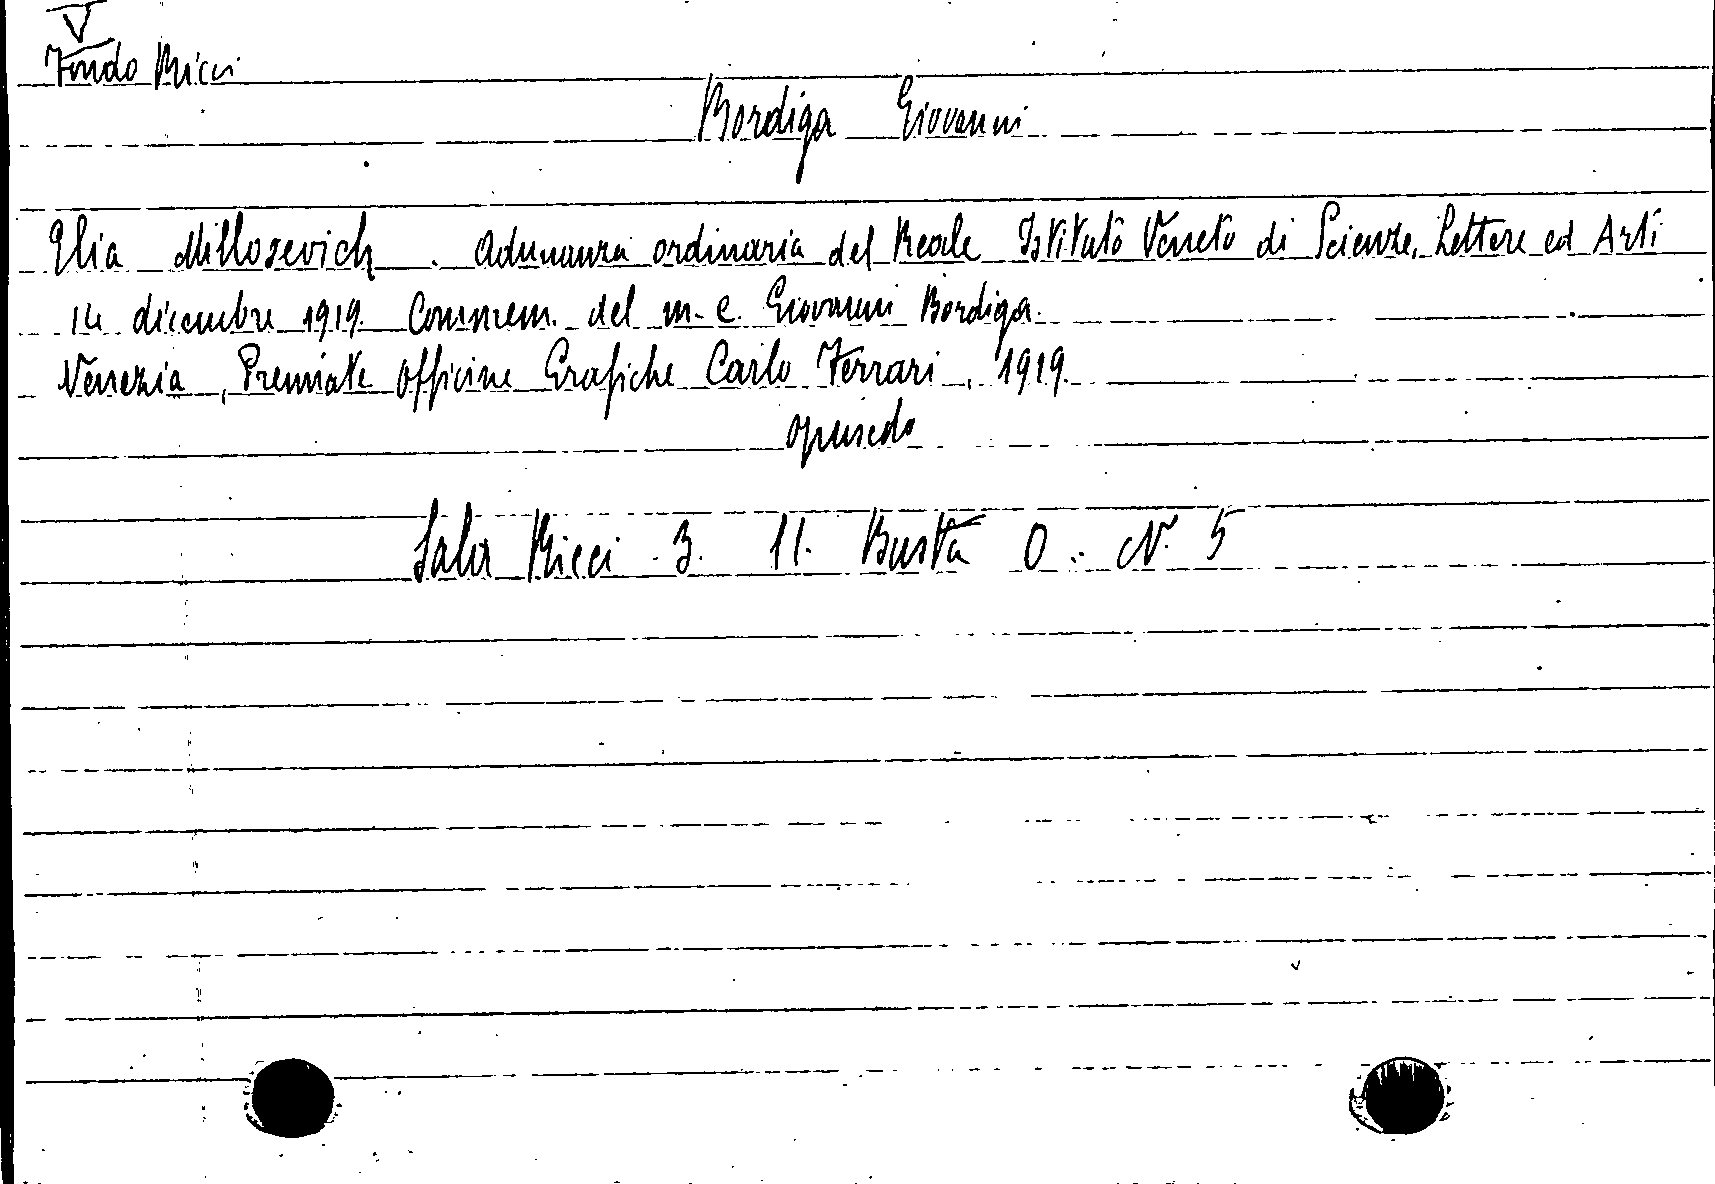 V
Fondo Ricci
Bordiga Giovanni
Elia Millosevich. Adunanza ordinaria del Reale Istituto Veneto di Scienze, Lettere ed Arti
14 dicembre 1919. Commem. del m. e. Giovanni Bordiga.
Venezia, Premiate Officine Grafiche Carlo Ferrari, 1919.
opuscolo
Sala Ricci 3. 11. Busta O. N. 5